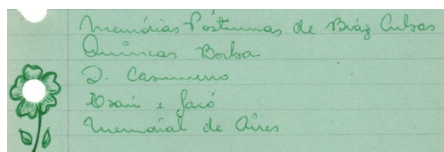 Memórias Póstumas de Bráz Cubas
Quincas Borba
D. Casmurro
Esaú e Jacó
Memorial de Aires